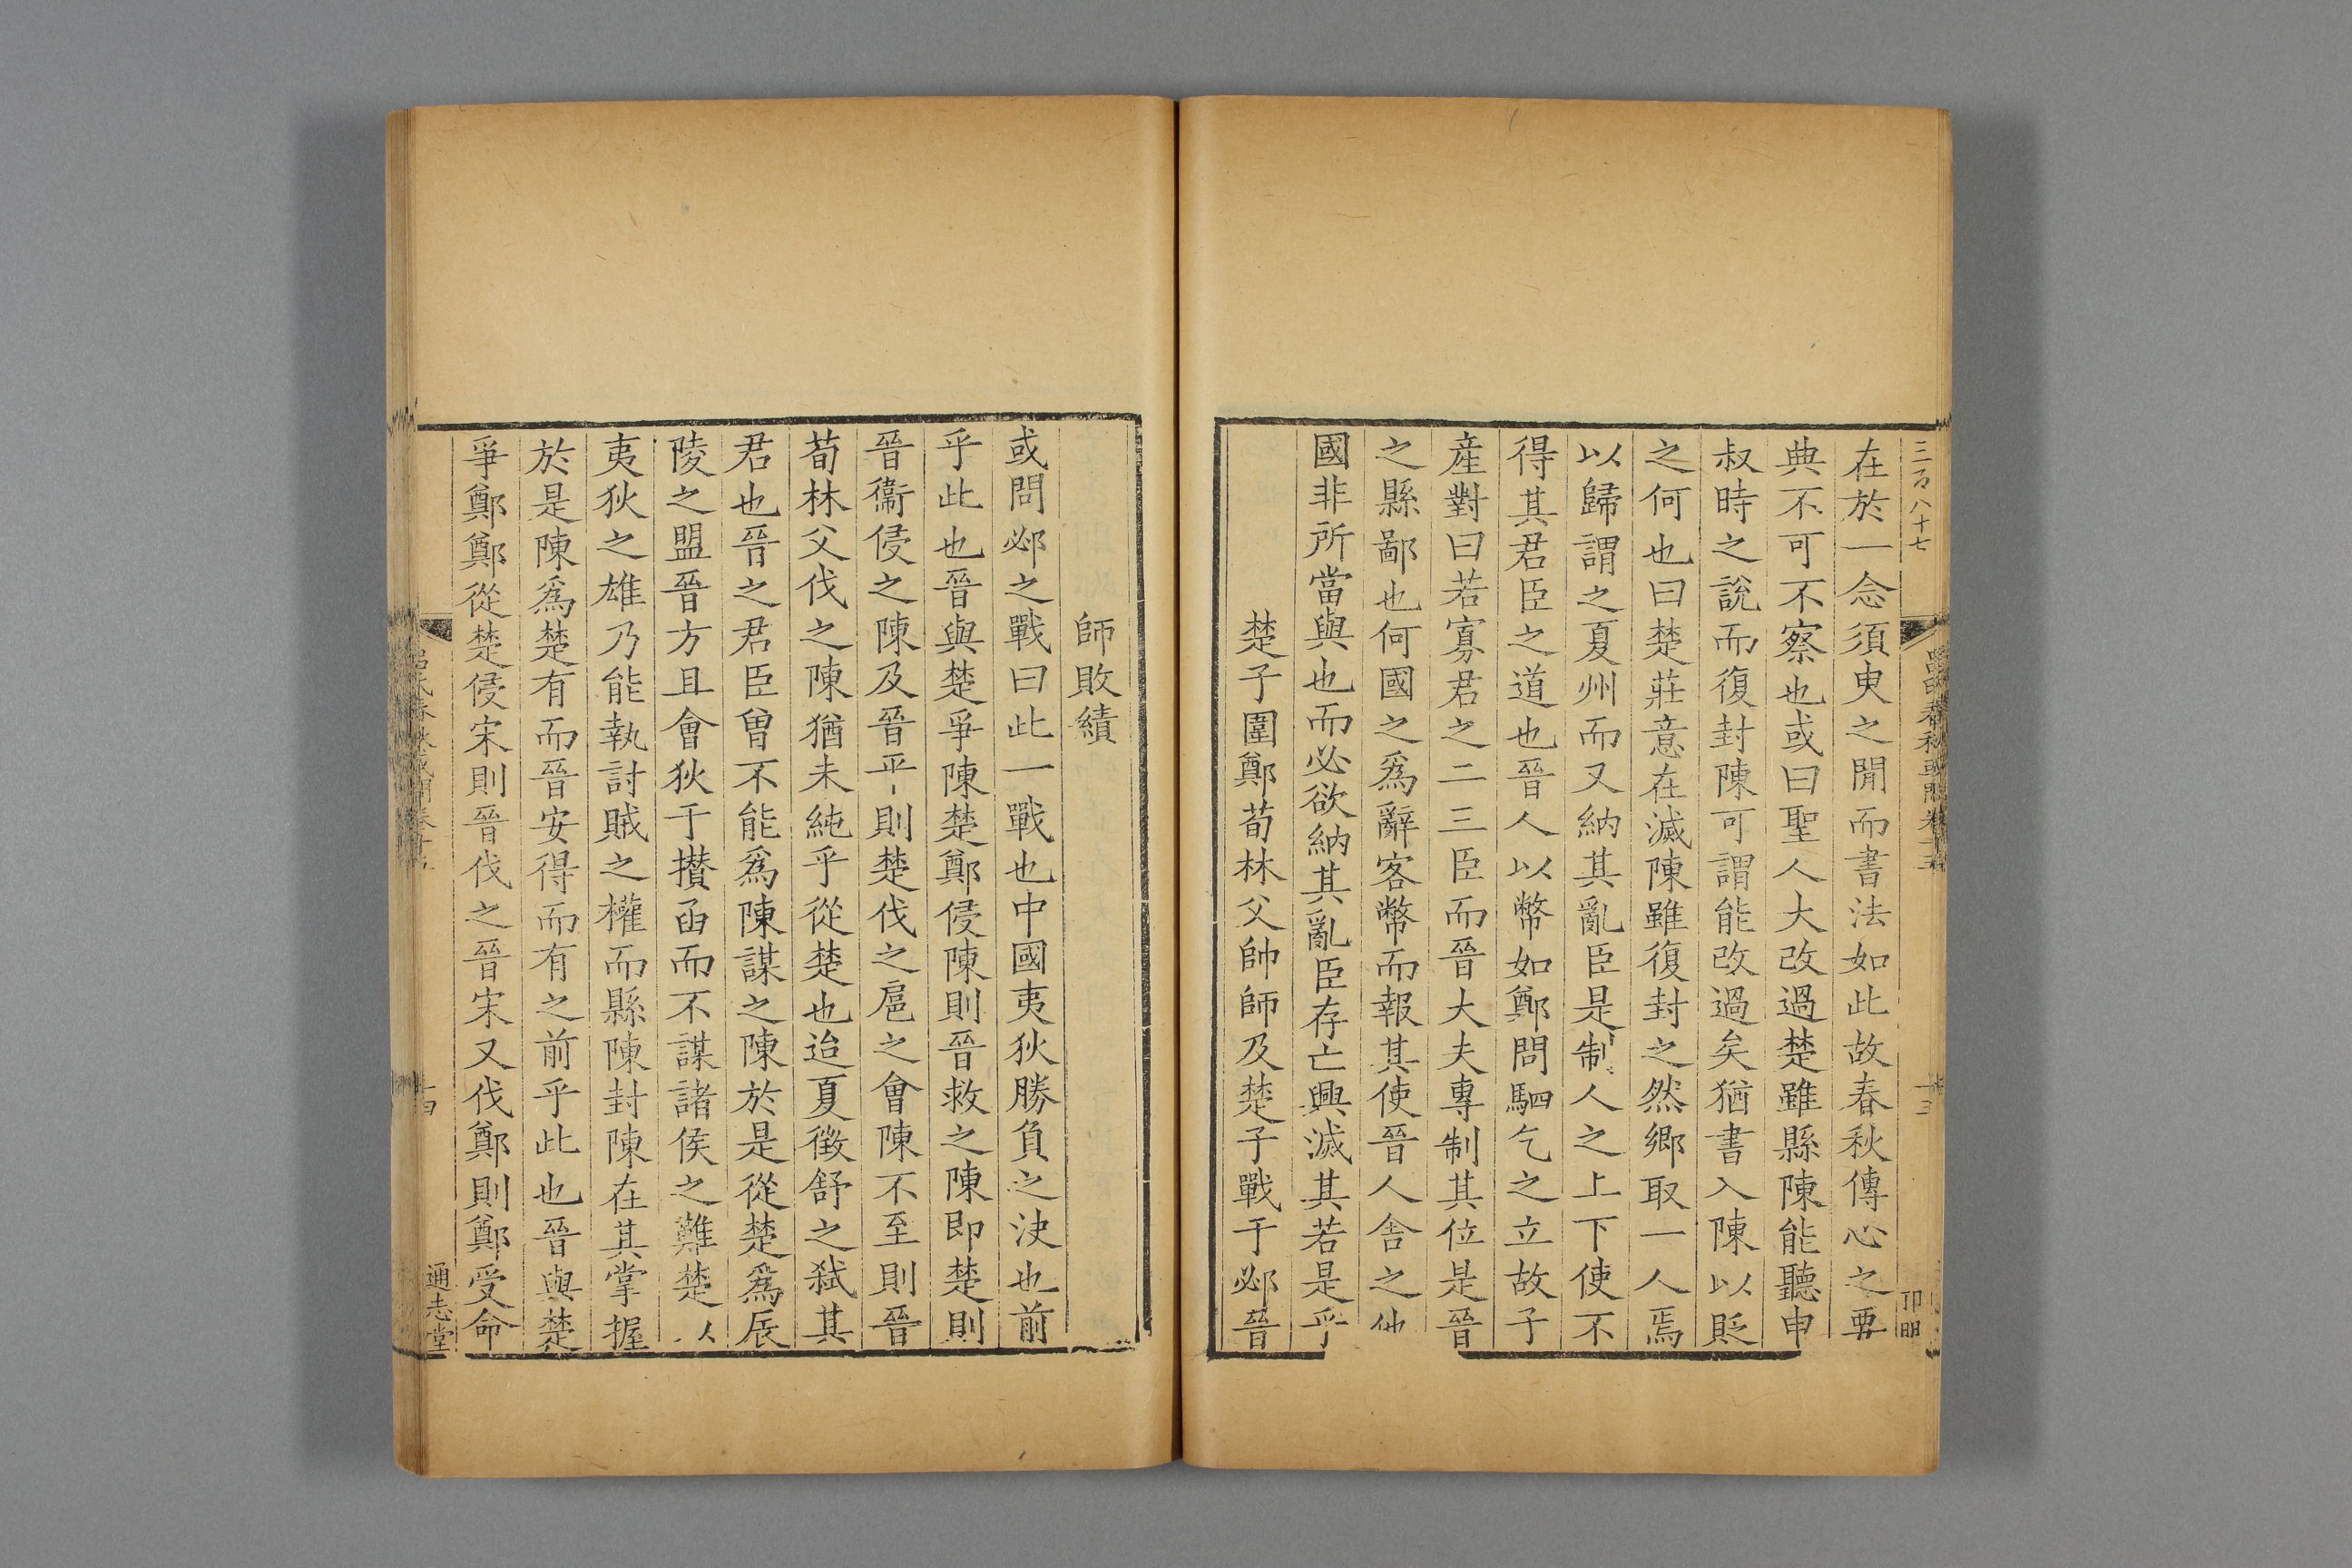 三百八十七
在於一念須臾之閒而書法如此故春秋傳心之要
典不可不察也或曰聖人大改過楚雖縣陳能聽申
叔時之說而復封陳可謂能改過矣猶書入陳以貶
之何也曰楚莊意在滅陳雖復封之然鄉取一人焉
以歸謂之夏州而又納其亂臣是制人之上下使不
得其君臣之道也晉人以幣如鄭問駟乞之立故子
產對曰若寡君之二三臣而晉大夫專制其位是晉
之縣鄙也何國之爲辭客幣而報其使晉人舍之他
國非所當與也而必欲納其亂臣存亡興滅其若是乎
楚子圍鄭荀林父帥師及楚子戰于邲晉
師敗績
或問邲之戰曰此一戰也中國夷狄勝負之決也前
乎此也晉與楚爭陳楚鄭侵陳則晉救之陳即楚則
晉衞侵之陳及晉平則楚伐之扈之會陳不至則晉
荀林父伐之陳猶未純乎從楚也迨夏徵舒之弒其
君也晉之君臣曾不能爲陳謀之陳於是從楚爲辰
陵之盟晉方且會狄于攢函而不謀諸侯之難楚以
夷狄之雄乃能執討賊之權而縣陳封陳在其掌握
於是陳爲楚有而晉安得而有之前乎此也晉與楚
爭鄭鄭從楚侵宋則晉伐之晉宋又伐鄭則鄭受命
呂氏春秋或問卷十五
十四
通志堂